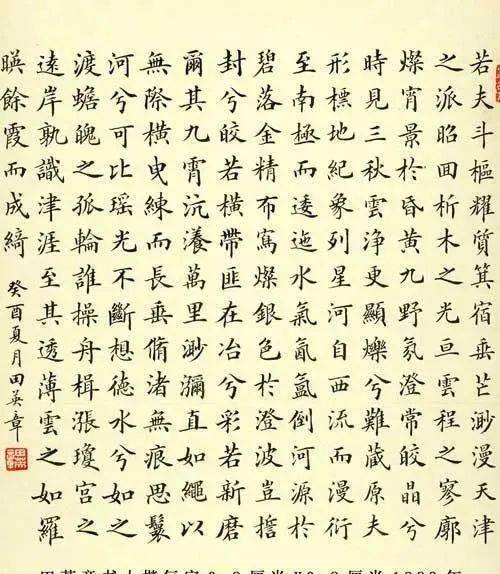 若夫斗樞耀質箕宿垂芒渺漫天津
之派昭回析木之光亘雲程之寥廓
燦宵景於昏黃九野氛澄常皎晶兮
時見三秋雲淨更顯爍兮難藏原夫
形標地紀象列星河自西流而漫衍
至南極而逶迤水氣氤氳倒河源於
碧落金精布寫燦銀色於澄波豈擔
封兮皎若橫帶匪在冶兮彩若新磨
爾其九霄沆瀁萬里渺瀰直如繩以
無際橫曳練而長垂脩渚無痕思鬟
河兮可比瑶光不斷想德水兮如之
渡蟾魄之孤輪誰操舟楫漲瓊宮之
遠岸孰識津涯至其透薄雲之如羅
暎餘霞而成綺
癸酉夏月田英章